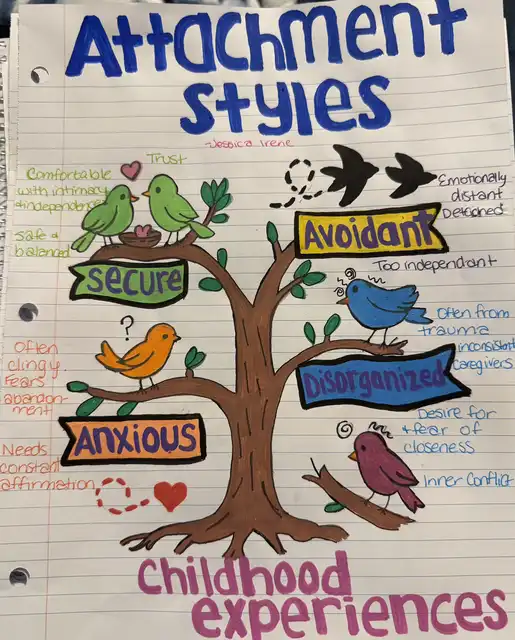 Attachment
Styles
-Jessica Irene
Trust
Comfortable
with intimacy
& independence
safe &
balanced
Secure
Emotionally
distant
Detioned
Avoidant
Too independant
Often from
trauma
inconsistant
caregivers
Disorganized
Desire for
& fear of
closeness
Inner Conflict
?
Often
clingy.
Fears
abandon-
ment
Anxious
Needs
constant
affirmation
Childhood
experiences